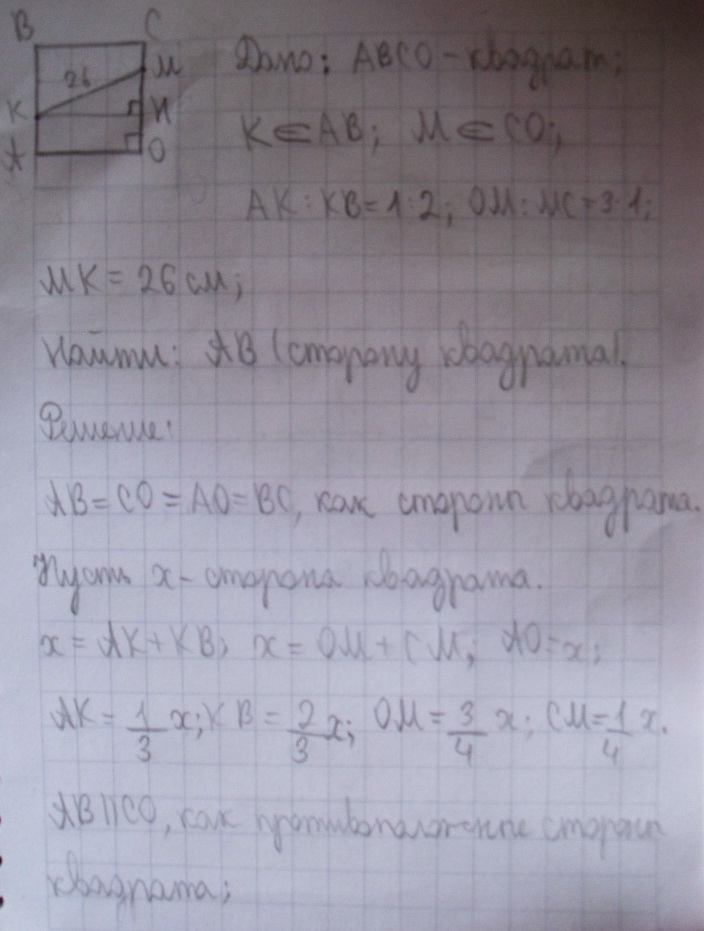 B C
26 M
K H
A O
Дано: ABCO - квадрат;
K ∈ AB; M ∈ CO;
AK : KB = 1:2; OM : MC = 3:1;
MK = 26 см;
Найти: AB (сторону квадрата).
Решение:
AB = CO = AO = BC, как стороны квадрата.
Пусть x - сторона квадрата.
x = AK + KB; x = OM + CM; AO = x;
AK = 1/3 x; KB = 2/3 x; OM = 3/4 x; CM = 1/4 x.
AB || CO, как противоположные стороны
квадрата;